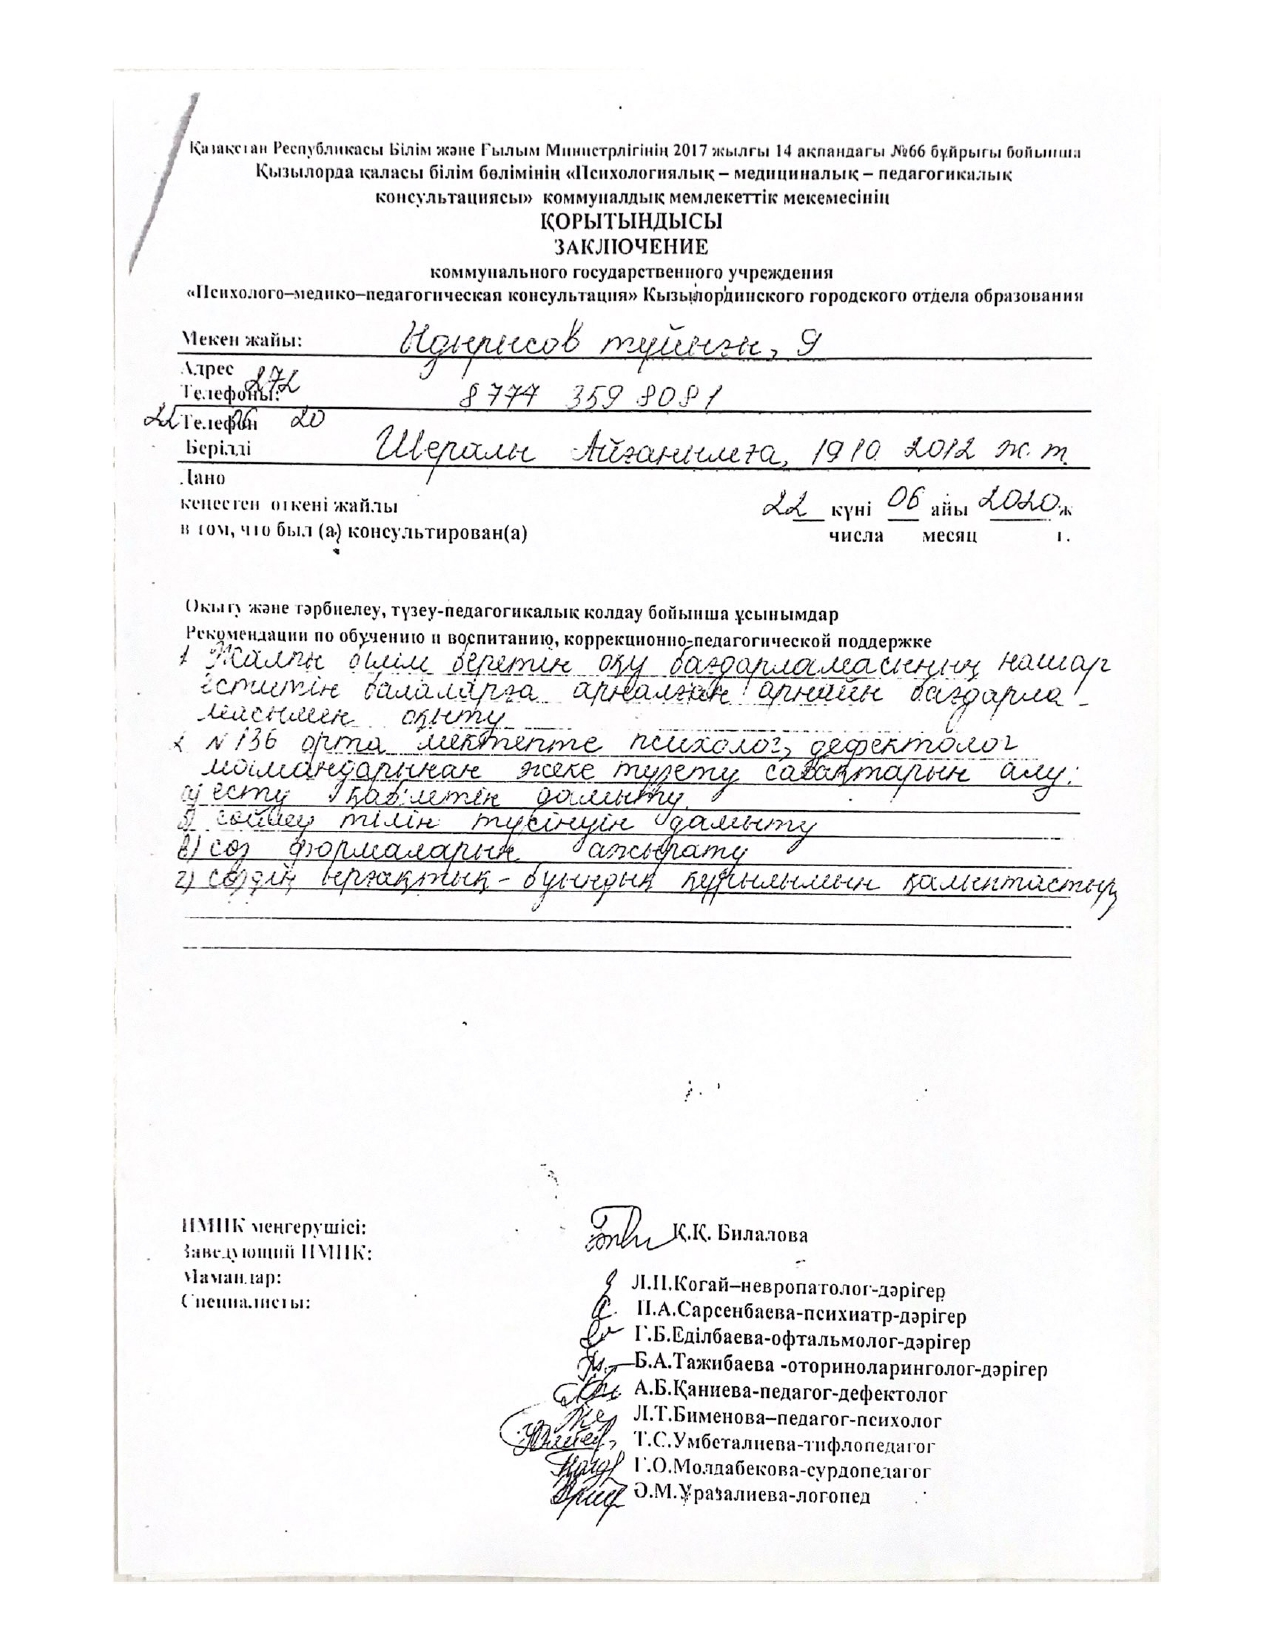 Қазақстан Республикасы Білім және Ғылым Министрлігінің 2017 жылғы 14 ақпандағы №66 бұйрығы бойынша
Қызылорда қаласы білім бөлімінің «Психологиялық – медициналық – педагогикалық
консультациясы» коммуналдық мемлекеттік мекемесінің
ҚОРЫТЫНДЫСЫ
ЗАКЛЮЧЕНИЕ
коммунального государственного учреждения
«Психолого–медико–педагогическая консультация» Кызылординского городского отдела образования
Мекен жайы: Идырысов түйыгы, 9
Адрес
272
Телефоны: 8777 359 8081
22 Телефон 06 20
Берілді Шералы Айғанымға, 19 10. 2012 ж. т.
Дано
кеңестен өткені жайлы 22 күні 06 айы 2020 ж
в том, что был (а) консультирован(а) числа месяц г.
Оқыту және тәрбиелеу, түзеу-педагогикалық қолдау бойынша ұсынымдар
Рекомендации по обучению и воспитанию, коррекционно-педагогической поддержке
1 Жалпы білім беретін оқу бағдарламасының нашар
еститін балаларға арналған арнайы бағдарла -
масымен оқыту
2 N 136 орта мектепте психолог, дефектолог
мамандарынан жеке түзету сабақтарын алу:
а) есту қабілетін дамыту.
б) сөйлеу тілін түсінуін дамыту
в) сөз формаларын ажырату
г) сөздің ырғақтық - буындық құрылымын қалыптастыру
ПМПК меңгерушісі: Қ.Қ. Билалова
Заведующий ПМПК:
Мамандар: Л.П.Когай–невропатолог-дәрігер
Специалисты: П.А.Сарсенбаева-психиатр-дәрігер
Г.Б.Еділбаева-офтальмолог-дәрігер
Б.А.Тажибаева -оториноларинголог-дәрігер
А.Б.Қаниева-педагог-дефектолог
Л.Т.Бименова–педагог-психолог
Т.С.Умбеталиева-тифлопедагог
Г.О.Молдабекова-сурдопедагог
Ә.М.Ұразалиева-логопед